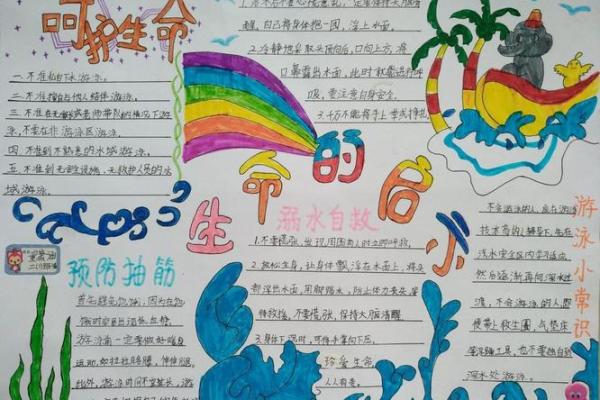 呵护生命
一.不准私自下水游泳。
二.不准擅自与他人结伴游泳。
三.不准在无家长或老师带队的情况下游
泳,不要在非游泳区游泳。
四.不准到不熟悉的水域游泳。
五.不准到无安全设施、无救护人员的水
域游泳。
息,自己将身体抱一团,浮上水面。
2.冷静地采取头顶向后,口向上方,将口
鼻露出水面,此时就能进行呼
吸,要注意自身安全。
3.千万不能将手上举或挣扎
生命的启示
溺水自救
1.不要慌张,发现周围有人时立即呼救,
2.放松全身,让身体飘浮在水面上,将头
部浮出水面,用脚踢水,防止体力丧失,等
待救援,不要慌张,保持大脑清醒
3.身体下沉时,可将手掌向下压。
珍爱生命
人人有责。
预防抽筋
饭时空腹
游泳前一定要做好暖身
运动,如拉拉肌腱,伸伸懒腰
此外,游泳时间不宜过长,游
游泳小常识
不会游泳的人,应在游泳
技术高的人辅导下,先在
浅水安全区内学习适应
然后逐渐再向深水过
渡,不会游泳的人即
使带上救生圈,气垫床
等浮睡工具,也不要独自到
深水处游泳。